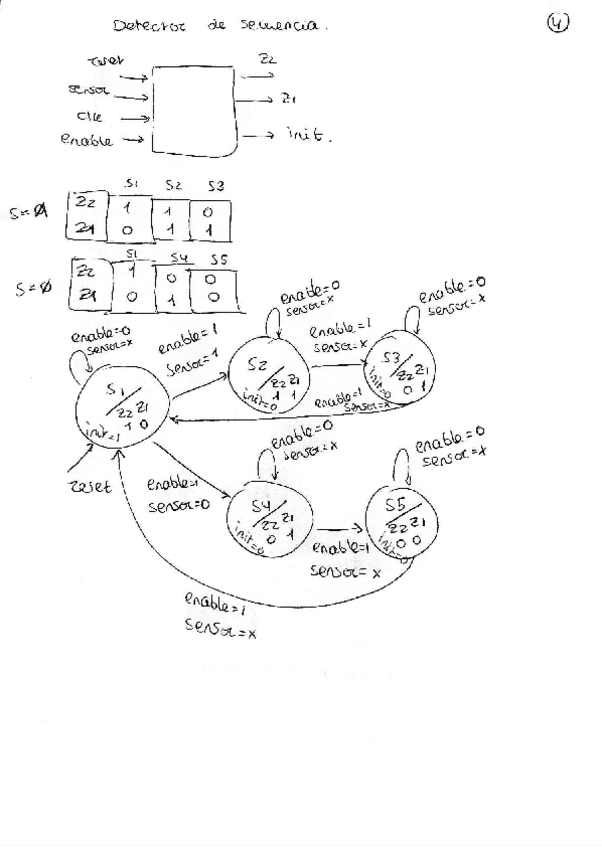 Detector de secuencia.
4
reset
sensor
clk
enable
Z2
Z1
init.
S1 S2 S3
S=0 Z2 1 1 0
Z1 0 1 1
S1 S4 S5
S=0 Z2 1 0 0
Z1 0 1 0
enable=0
sensor=x
enable=1
sensor=1
enable=0
sensor=x
enable=1
sensor=x
enable=0
sensor=x
S1
Z2 Z1
1 0
init=1
S2
Z2 Z1
1 1
init=0
S3
Z2 Z1
0 1
init=0
enable=1
sensor=x
reset
enable=1
sensor=0
enable=0
sensor=x
enable=0
sensor=x
S4
Z2 Z1
0 1
init=0
enable=1
sensor=x
S5
Z2 Z1
0 0
init=0
enable=1
sensor=x